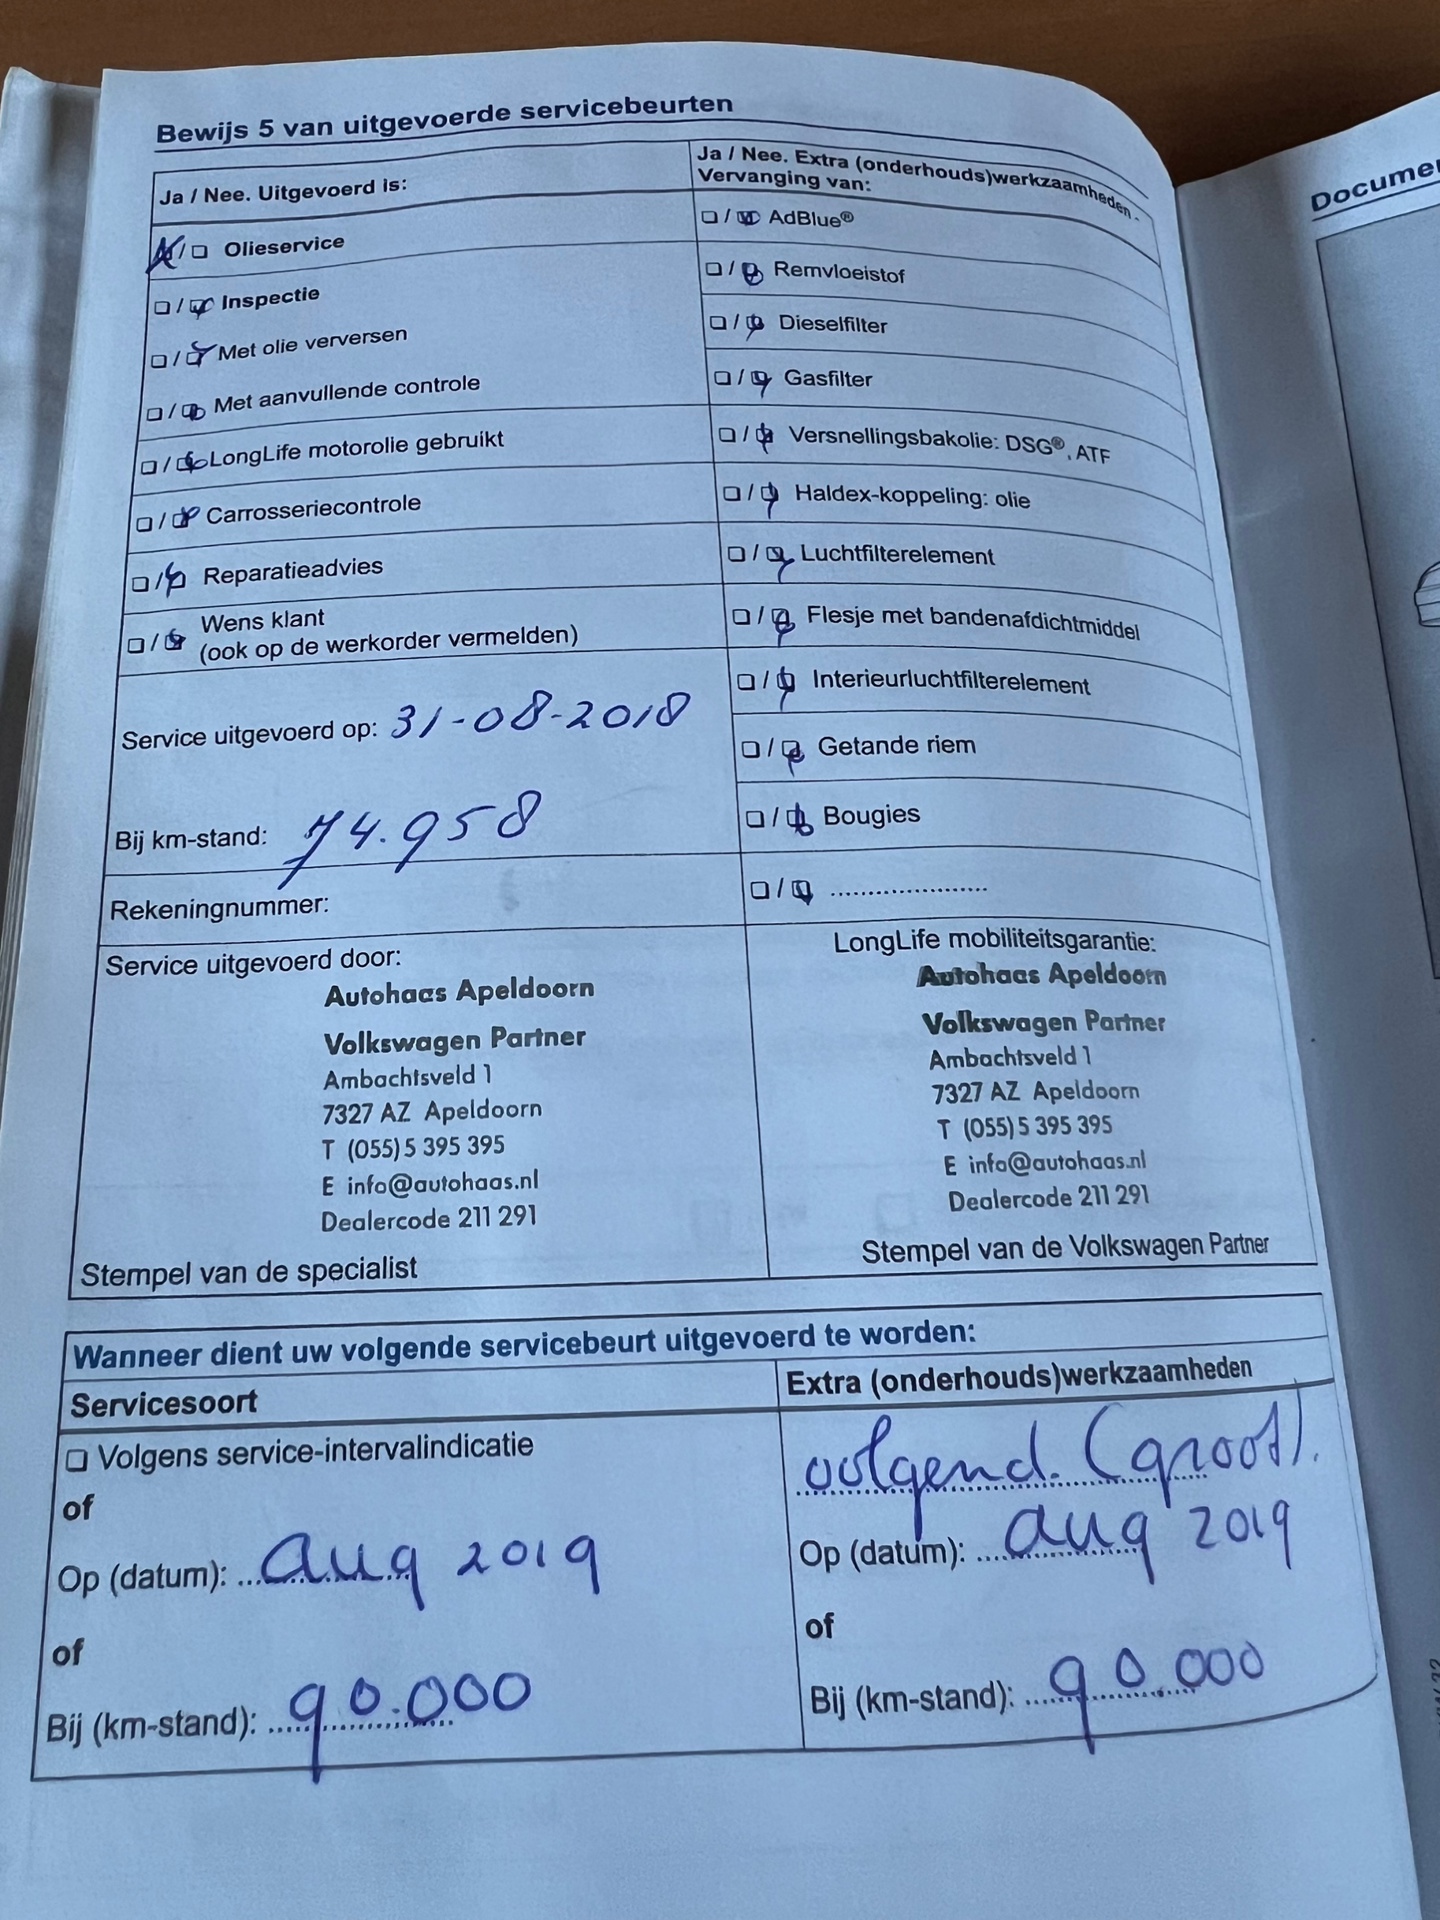 Bewijs 5 van uitgevoerde servicebeurten
Ja / Nee. Uitgevoerd is:
☒/☐ Olieservice
☐/☒ Inspectie
☐/☒ Met olie verversen
☐/☒ Met aanvullende controle
☐/☒ LongLife motorolie gebruikt
☐/☒ Carrosseriecontrole
☐/☒ Reparatieadvies
☐/☒ Wens klant
(ook op de werkorder vermelden)
Service uitgevoerd op: 31-08-2018
Bij km-stand: 74.958
Rekeningnummer:
Ja / Nee. Extra (onderhouds)werkzaamheden -
Vervanging van:
☐/☒ AdBlue®
☐/☒ Remvloeistof
☐/☒ Dieselfilter
☐/☒ Gasfilter
☐/☒ Versnellingsbakolie: DSG®, ATF
☐/☒ Haldex-koppeling: olie
☐/☒ Luchtfilterelement
☐/☒ Flesje met bandenafdichtmiddel
☐/☒ Interieurluchtfilterelement
☐/☒ Getande riem
☐/☒ Bougies
☐/☒ ......................
Service uitgevoerd door:
Autohaas Apeldoorn
Volkswagen Partner
Ambachtsveld 1
7327 AZ Apeldoorn
T (055) 5 395 395
E info@autohaas.nl
Dealercode 211 291
Stempel van de specialist
LongLife mobiliteitsgarantie:
Autohaas Apeldoorn
Volkswagen Partner
Ambachtsveld 1
7327 AZ Apeldoorn
T (055) 5 395 395
E info@autohaas.nl
Dealercode 211 291
Stempel van de Volkswagen Partner
Wanneer dient uw volgende servicebeurt uitgevoerd te worden:
Servicesoort
☐ Volgens service-intervalindicatie
of
Op (datum): aug 2019
of
Bij (km-stand): 90.000
Extra (onderhouds)werkzaamheden
volgend. (groot).
Op (datum): aug 2019
of
Bij (km-stand): 90.000